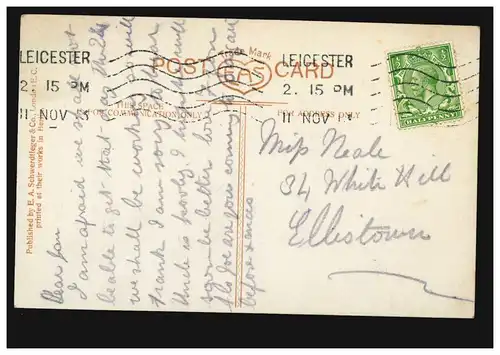 LEICESTER
2. 15 PM
11 NOV
Trade Mark
POST CARD
EAS
LEICESTER
2. 15 PM
11 NOV
HALFPENNY
THIS SPACE
FOR COMMUNICATION ONLY
THE ADDRESS ONLY
Published by E. A. Schwerdtfeger & Co., London E.C.
printed at their works in
Miss Neale
34 White Hill
Ellistown
Dear
I am afraid we shall not
be able to get that way this
we shall be working
thank I am sorry to hear
Uncle is poorly, I hope he will
soon be better
are you coming
before xmas